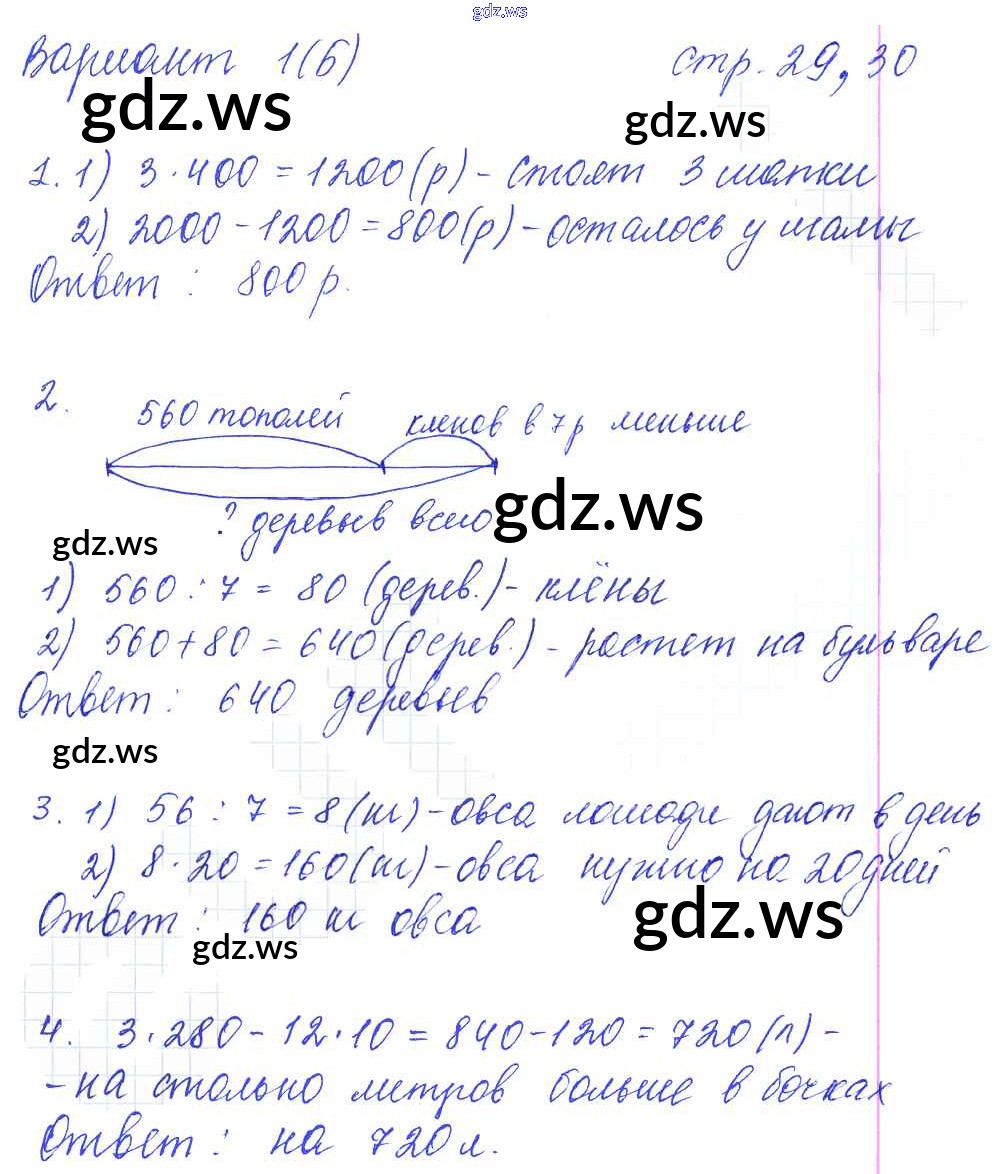 gdz.ws
Вариант 1(б) стр. 29, 30
gdz.ws gdz.ws
1. 1) 3·400 = 1200(р) - стоят 3 шапки
2) 2000 - 1200 = 800(р) - осталось у мамы
Ответ: 800 р.
2.
560 тополей кленов в 7 р меньше
? деревьев всего gdz.ws
gdz.ws
1) 560 : 7 = 80 (дерев.) - клёны
2) 560 + 80 = 640 (дерев.) - растет на бульваре
Ответ: 640 деревьев
gdz.ws
3. 1) 56 : 7 = 8 (кг) - овса лошади дают в день
2) 8·20 = 160(кг) - овса нужно на 20 дней
Ответ: 160 кг овса gdz.ws
gdz.ws
4. 3·280 - 12·10 = 840 - 120 = 720 (л) -
- на столько метров больше в бочках
Ответ: на 720 л.